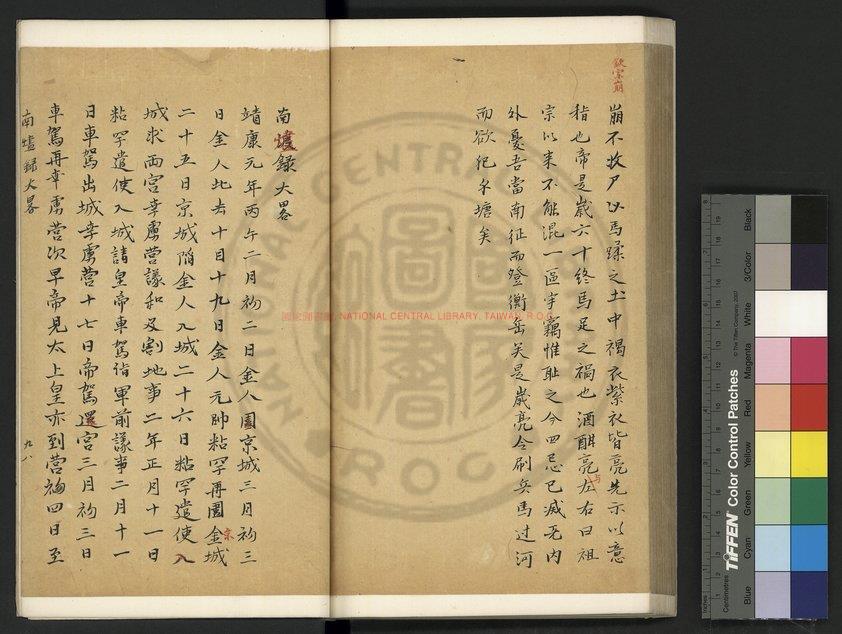 欽宗崩
崩不收尸以馬蹂之土中褐衣紫衣皆亮先示以意
稽也帝是歲六十終馬足之禍也酒酣亮与左右曰祖
宗以来不能混一區宇竊惟恥之今四忌已滅无内
外憂吾當南征而登衡岳矣是歲亮令刷兵馬过河
而欲犯錢塘矣
南燼録大畧
靖康元年丙午二月初二日金人圍京城三月初三
日金人北去十月十九日金人元帥粘罕再圍京城
二十五日京城陷金人入城二十六日粘罕遣使入
城求兩宮幸虜營議和及割地事二年正月十一日
粘罕遣使入城請皇帝車駕詣軍前議事二月十一
日車駕出城幸虜營十七日帝駕還宮三月初三日
車駕再幸虜營次早帝見太上皇亦到營初四日至
南燼録大畧
九八
國家圖書館 NATIONAL CENTRAL LIBRARY, TAIWAN, R.O.C
NATIONAL CENTRAL
R.O.C
TIFFEN Color Control Patches
© The Tiffen Company, 2007
Inches
Centimetres
Blue
Cyan
Green
Yellow
Red
Magenta
White
3/Color
Black